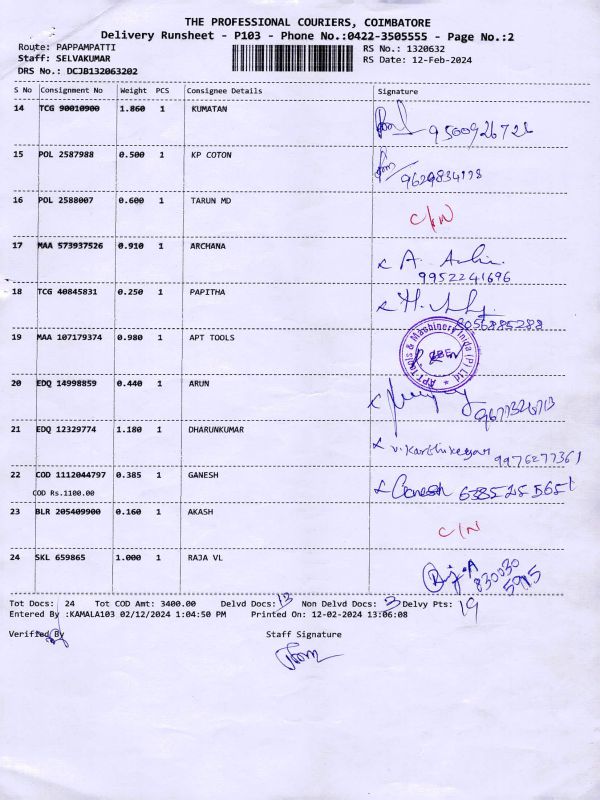 THE PROFESSIONAL COURIERS, COIMBATORE
Delivery Runsheet - P103 - Phone No.:0422-3505555 - Page No.:2
Route: PAPPAMPATTI RS No.: 1320632
Staff: SELVAKUMAR RS Date: 12-Feb-2024
DRS No.: DCJB132063202
S No Consignment No Weight PCS Consignee Details Signature
14 TCG 90010900 1.860 1 KUMATAN
9500926726
15 POL 2587988 0.500 1 KP COTON
9629834178
16 POL 2588007 0.600 1 TARUN MD
C/N
17 MAA 573937526 0.910 1 ARCHANA
x A.
9952241696
18 TCG 40845831 0.250 1 PAPITHA
8056885288
19 MAA 107179374 0.980 1 APT TOOLS
APT Tools & Machinery India (P) Ltd
20 EDQ 14998859 0.440 1 ARUN
21 EDQ 12329774 1.180 1 DHARUNKUMAR
x V. Karthikeyan 9976277361
22 COD 1112044797 0.385 1 GANESH
COD Rs.1100.00
x Ganesh
23 BLR 205409900 0.160 1 AKASH
C/N
24 SKL 659865 1.000 1 RAJA VL
830030
5915
Tot Docs: 24 Tot COD Amt: 3400.00 Delvd Docs: Non Delvd Docs: 3 Delvy Pts: 19
Entered By :KAMALA103 02/12/2024 1:04:50 PM Printed On: 12-02-2024 13:06:08
Verified By Staff Signature